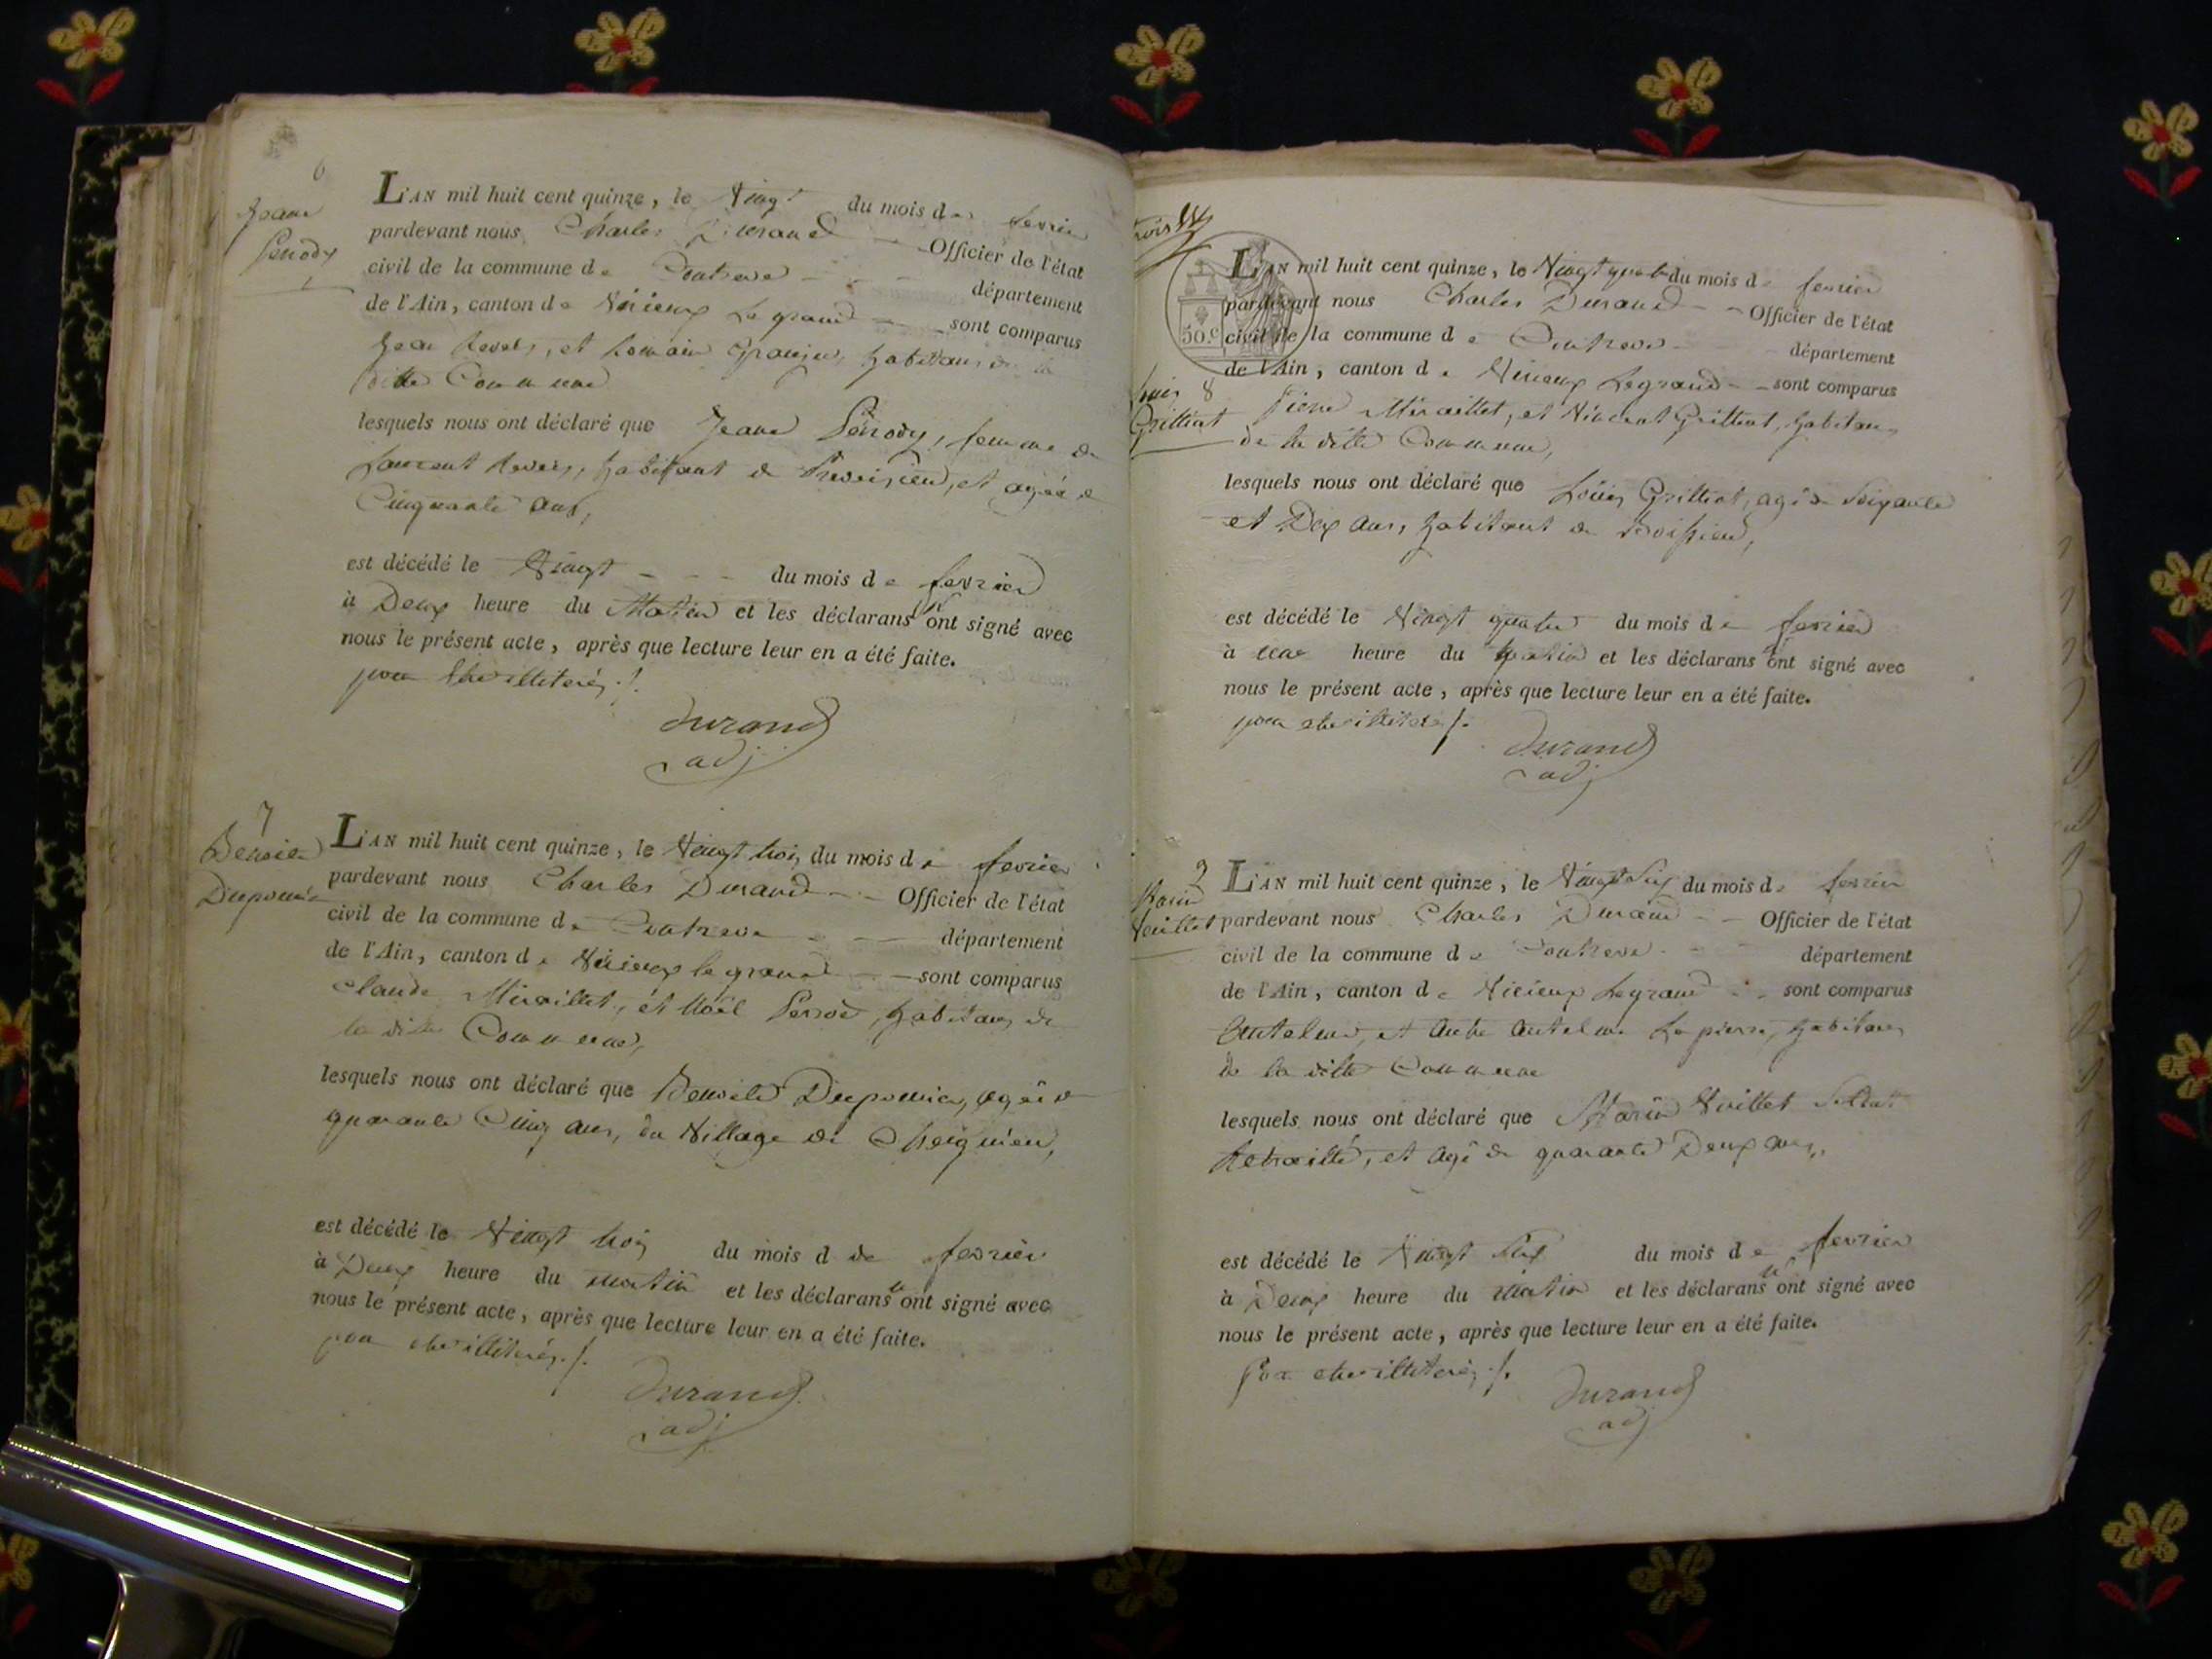 6
Jeane
Perrody
L'AN mil huit cent quinze, le Vingt du mois de fevrier
pardevant nous Charles Durand Officier de l'état
civil de la commune de Contrevo département
de l'Ain, canton de Virieux Le grand sont comparus
et Romain habitans de la
ditte Commune
lesquels nous ont déclaré que Jeane Perrody, femme de
Laurent habitant de et agée de
Cinquante ans,
est décédé le Vingt du mois de fevrier
à Deux heure du Matin et les déclarans n'ont signé avec
nous le présent acte, après que lecture leur en a été faite.
pour etre illiterés ./.
Durand
adj
7
Benoite
L'AN mil huit cent quinze, le Vingt trois du mois de fevrier
pardevant nous Charles Durand Officier de l'état
civil de la commune de Contrevo département
de l'Ain, canton de Virieux le grand sont comparus
Claude Miraillet, et Noël habitans de
la ditte Commune,
lesquels nous ont déclaré que Benoite agée de
quarante Cinq ans, du Village de Cheignieu,
est décédé le Vingt trois du mois d de fevrier
à Deux heure du matin et les déclarans n'ont signé avec
nous le présent acte, après que lecture leur en a été faite.
pour etre illiterés ./.
Durand
adj
50.c
L'AN mil huit cent quinze, le Vingt quatre du mois de fevrier
pardevant nous Charles Durand Officier de l'état
civil de la commune de Contrevo département
de l'Ain, canton de Virieux Legrand sont comparus
8
Grilliat
Pierre Miraillet, et Vincent Grilliat, habitans
de la ditte Commune,
lesquels nous ont déclaré que Louis Grilliat, agé de Soixante
et Dix ans, habitant de Boissieu,
est décédé le Vingt quatre du mois de fevrier
à une heure du matin et les déclarans n'ont signé avec
nous le présent acte, après que lecture leur en a été faite.
pour etre illiterés ./.
Durand
adj
9
Marin
Vuillet
L'AN mil huit cent quinze, le Vingt Six du mois de fevrier
pardevant nous Charles Durand Officier de l'état
civil de la commune de Contrevo département
de l'Ain, canton de Virieux Legrand sont comparus
Antelme, et Autre Antelme La pierre, habitans
de la ditte Commune
lesquels nous ont déclaré que Marin Vuillet Soldat
Retraitté, et agé de quarante Deux ans,
est décédé le Vingt Six du mois de fevrier
à Deux heure du matin et les déclarans n'ont signé avec
nous le présent acte, après que lecture leur en a été faite.
Pour etre illiterés ./.
Durand
adj